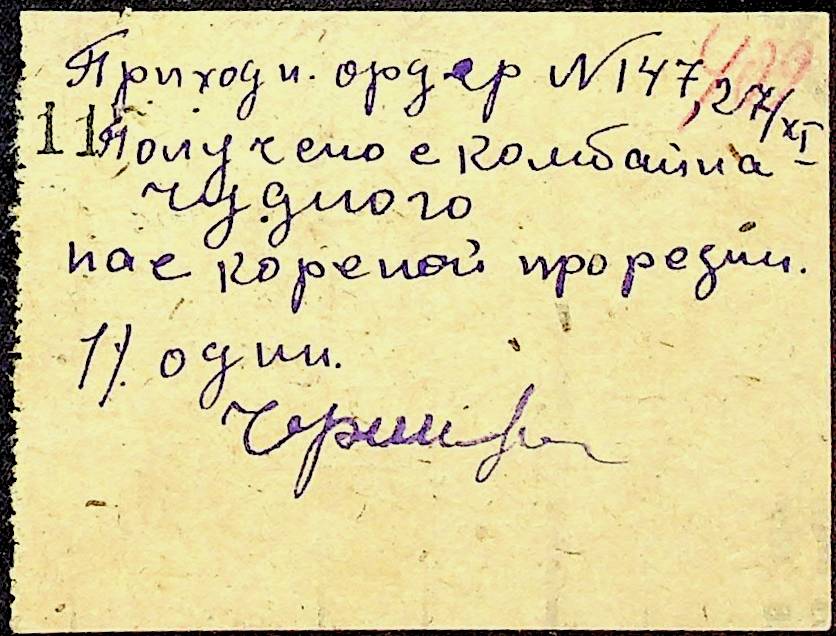 Приходн. ордер N 147, 27/XI
11 Получено с комбайна
Чудного
пас кореной прорезин.
1/. один.